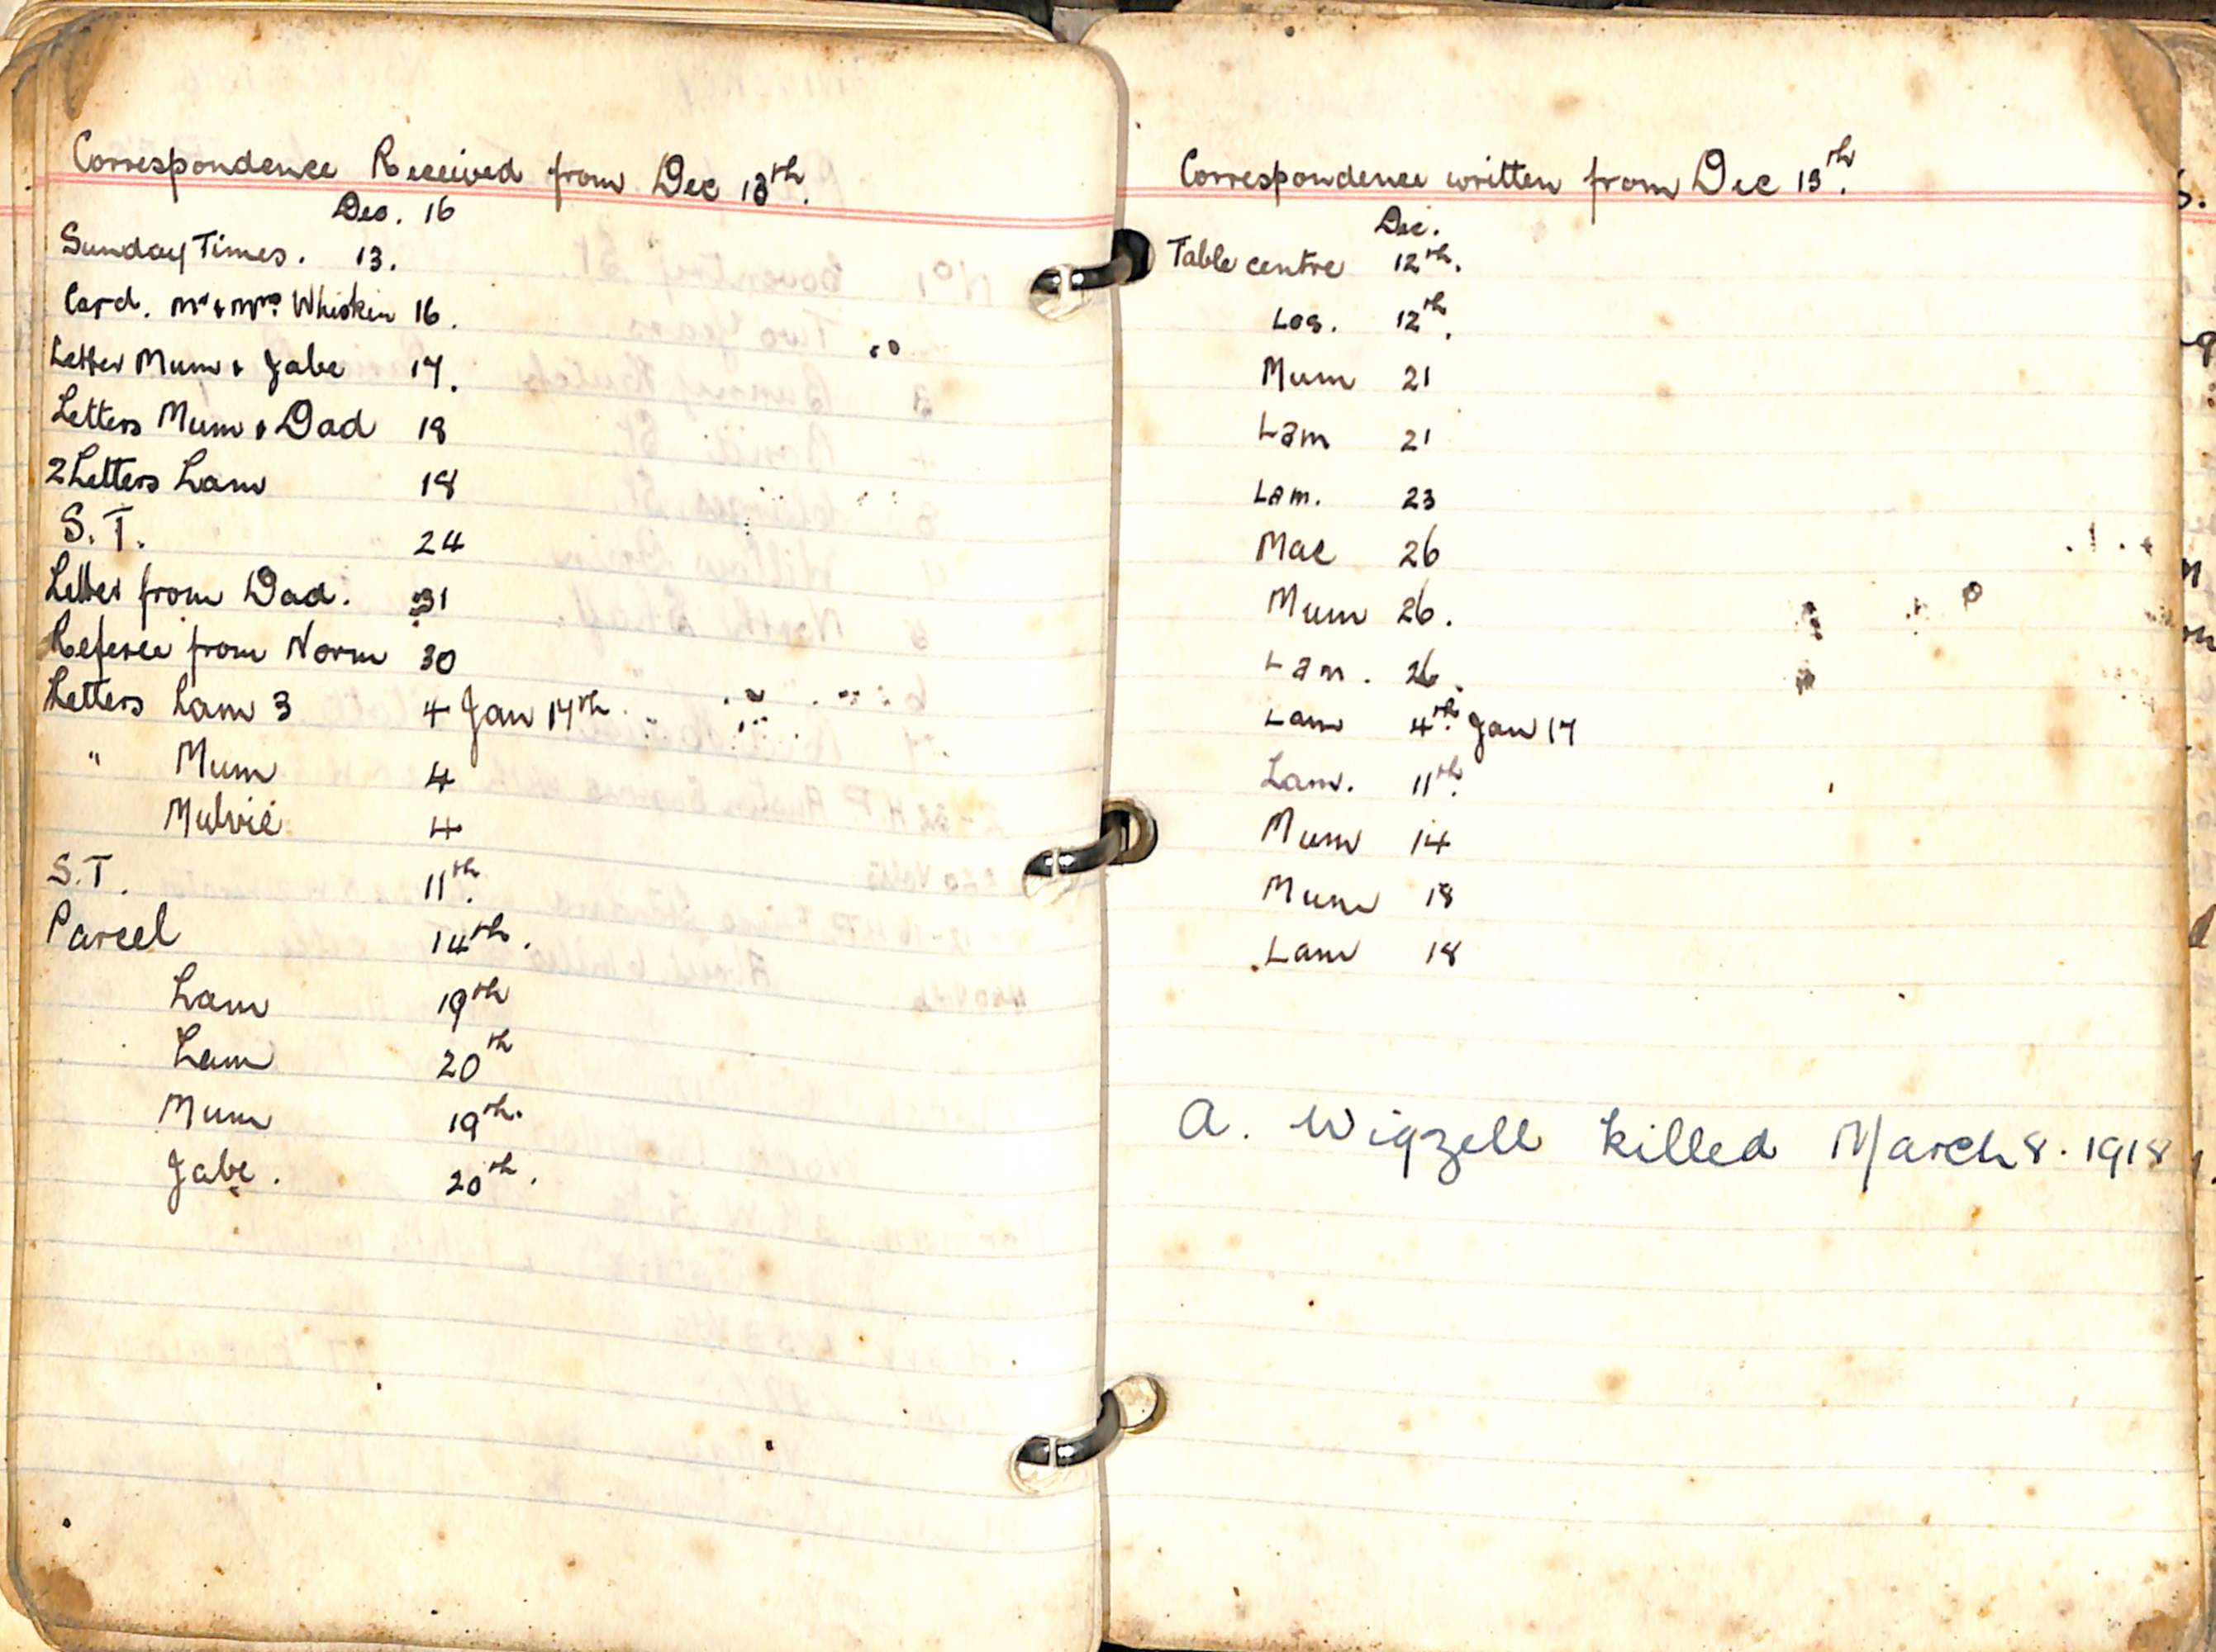 Correspondence Received from Dec 13th.
Dec. 16
Sunday Times. 13.
Card. Mr & Mrs. Whiskin 16.
Letter Mum & Jabe 17.
Letters Mum & Dad 18
2 Letters Lam 18
S.T. 24
Letter from Dad. 31
Referee from Norm 30
Letters Lam 3 4 Jan 17th
" Mum 4
Mulvie 4
S.T. 11th.
Parcel 14th.
Lam 19th
Lam 20th
Mum 19th.
Jabe. 20th.
Correspondence written from Dec 13th.
Dec.
Table centre 12th.
Los. 12th.
Mum 21
Lam 21
Lam. 23
Mac 26
Mum 26.
Lam. 26.
Lam 4th. Jan 17
Lam. 11th.
Mum 14
Mum 18
Lam 18
A. Wigzell killed March 8. 1918